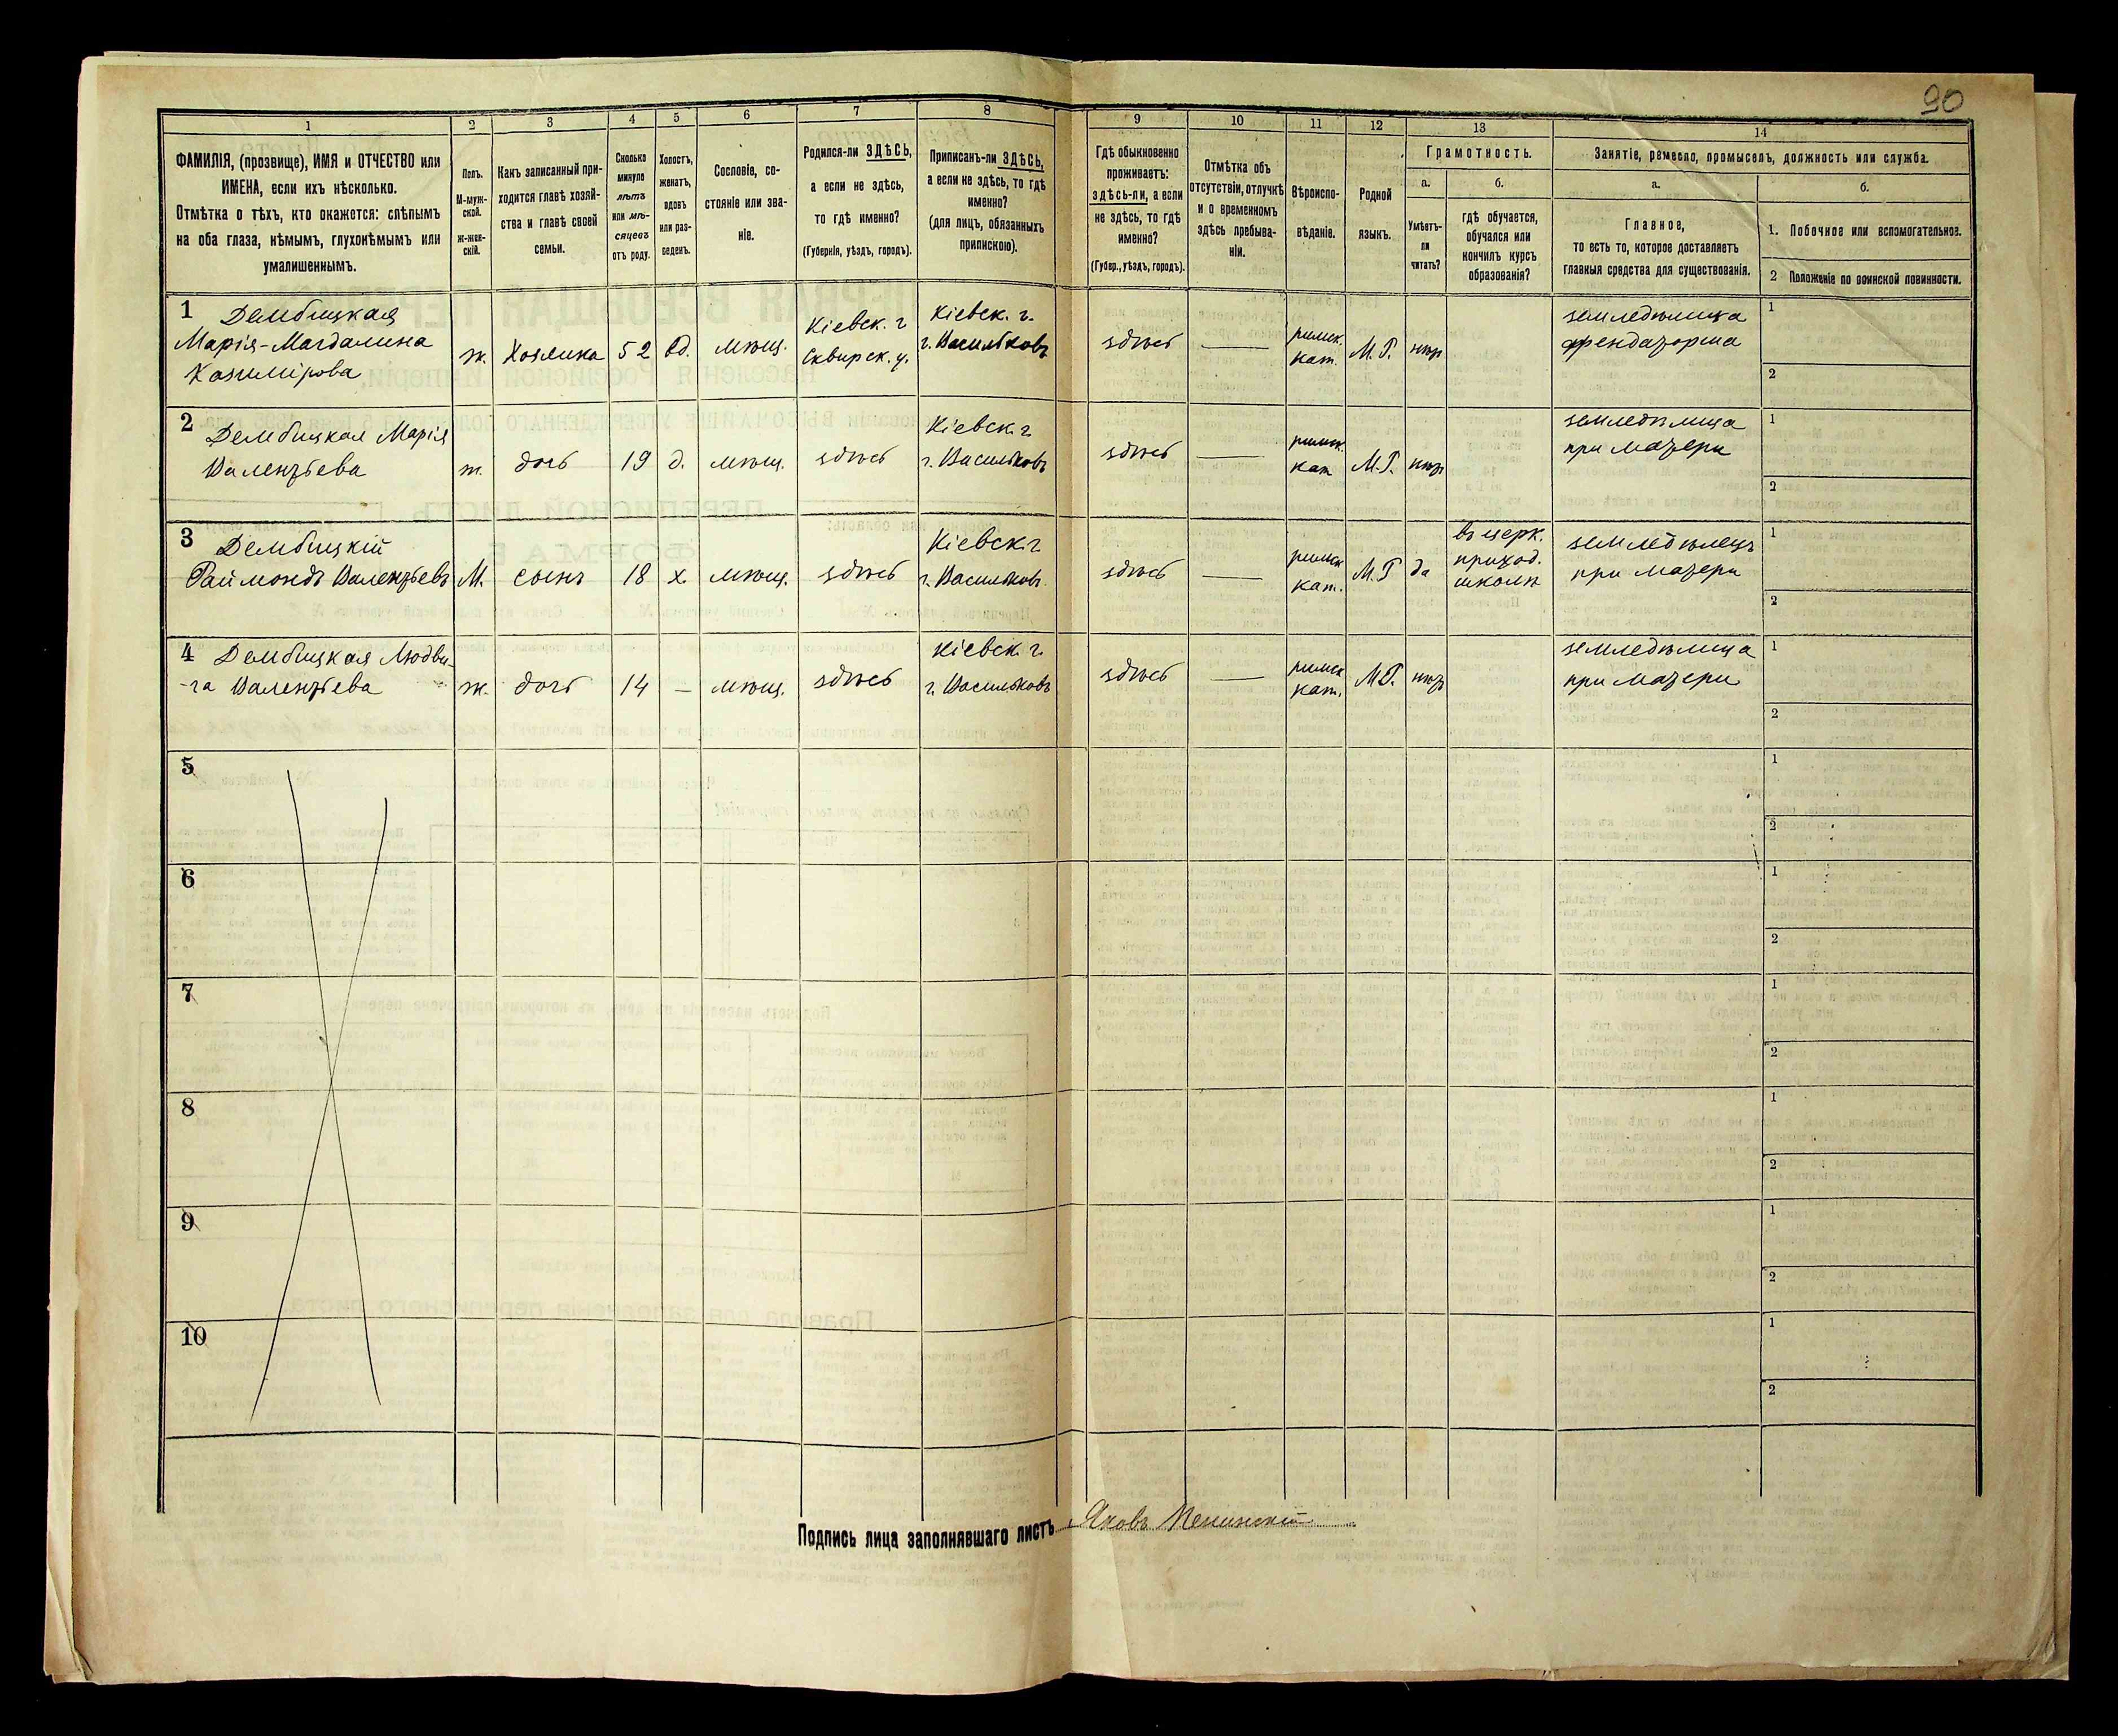 90
1
2
3
4
5
6
7
8
9
10
11
12
13
14
ФАМИЛІЯ, (прозвище), ИМЯ и ОТЧЕСТВО или
ИМЕНА, если ихъ нѣсколько.
Отмѣтка о тѣхъ, кто окажется: слѣпымъ
на оба глаза, нѣмымъ, глухонѣмымъ или
умалишеннымъ.
Полъ.
М-муж-
ской.
ж-жен-
скій.
Какъ записанный при-
ходится главѣ хозяй-
ства и главѣ своей
семьи.
Сколько
минуло
лѣтъ
или мѣ-
сяцевъ
отъ роду.
Холостъ,
женатъ,
вдовъ
или раз-
веденъ.
Сословіе, со-
стояніе или зва-
ніе.
Родился-ли ЗДѢСЬ,
а если не здѣсь,
то гдѣ именно?
(Губернія, уѣздъ, городъ).
Приписанъ-ли ЗДѢСЬ,
а если не здѣсь, то гдѣ
именно?
(для лицъ, обязанныхъ
припискою).
Гдѣ обыкновенно
проживаетъ:
здѣсь-ли, а если
не здѣсь, то гдѣ
именно?
(Губер., уѣздъ, городъ).
Отмѣтка объ
отсутствіи, отлучкѣ
и о временномъ
здѣсь пребыва-
ніи.
Вѣроиспо-
вѣданіе.
Родной
языкъ.
Грамотность.
а.
Умѣетъ-
ли
читать?
б.
гдѣ обучается,
обучался или
кончилъ курсъ
образованія?
Занятіе, ремесло, промыселъ, должность или служба.
а.
Главное,
то есть то, которое доставляетъ
главныя средства для существованія.
б.
1. Побочное или вспомогательное.
2 Положеніе по воинской повинности.
1 Дембицкая
Марія-Магдалина
Казимірова
ж.
Хозяйка
52
вд.
мѣщ.
Кіевск. г
Сквирск. у.
Кіевск. г.
г. Васильковъ
здѣсь
—
римск.
кат.
М. Р.
нѣтъ
земледѣлица
арендаторша
1
2
2 Дембицкая Марія
Валентьева
ж.
дочь
19
д.
мѣщ.
здѣсь
Кіевск. г.
г. Васильковъ
здѣсь
—
римск.
кат
М. Р.
нѣтъ
земледѣлица
при матери
1
2
3 Дембицкій
Раймондъ Валентьевъ
М.
сынъ
18
х.
мѣщ.
здѣсь
Кіевск. г
г. Васильковъ.
здѣсь
—
римск
кат.
М. Р
да
въ церк.
приход.
школѣ
земледѣлецъ
при матери
1
2
4 Дембицкая Людви-
-га Валентьева
ж.
дочь
14
—
мѣщ.
здѣсь
Кіевск. г.
г. Васильковъ
здѣсь
—
римск
кат.
М. Р.
нѣтъ
земледѣлица
при матери
1
2
5
1
2
6
1
2
7
1
2
8
1
2
9
1
2
10
1
2
Подпись лица заполнявшаго листъ Яковъ